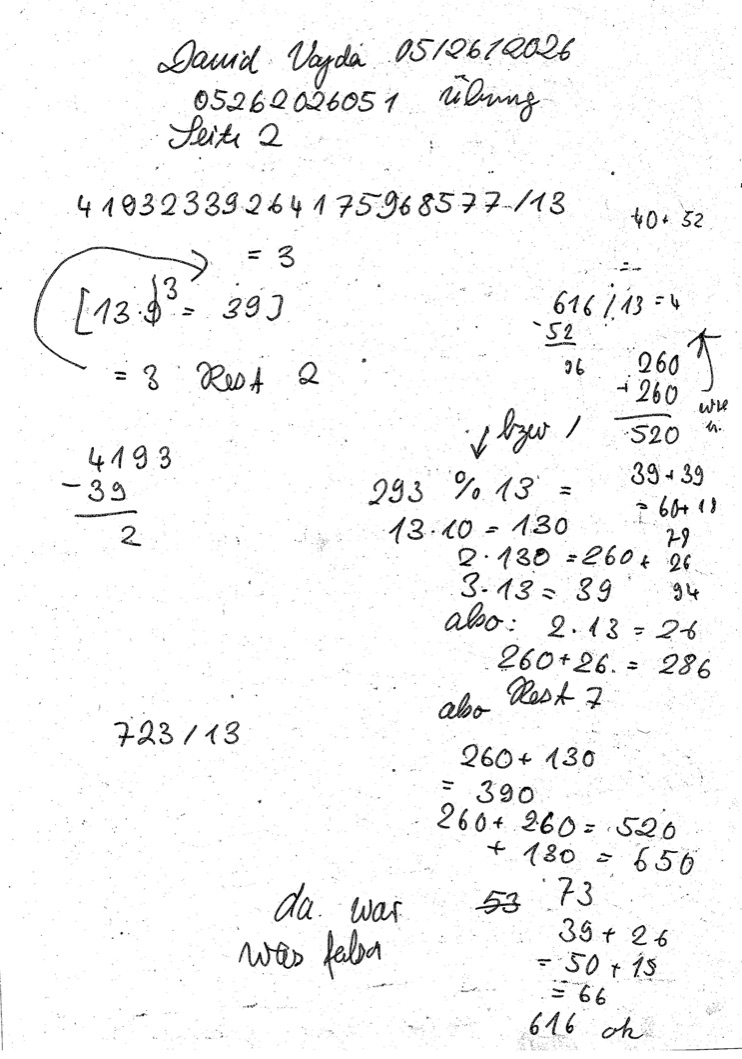 David Vajda 05/26/2026
05262026051 übung
Seite 2
41932339264175968577/13
= 3
[13·9 3 = 39]
= 3 Rest 2
4193
-39
2
723/13
da war
was falsch
40+52
=
616/13=4
-52
96
260
+260
520
bzw /
293 % 13 =
13·10=130
2·130=260+
3·13=39
also: 2·13=26
260+26=286
also Rest 7
39+39
=60+18
78
26
94
260+130
=390
260+260=520
+130=650
53 73
39+26
=50+15
=66
616 ok